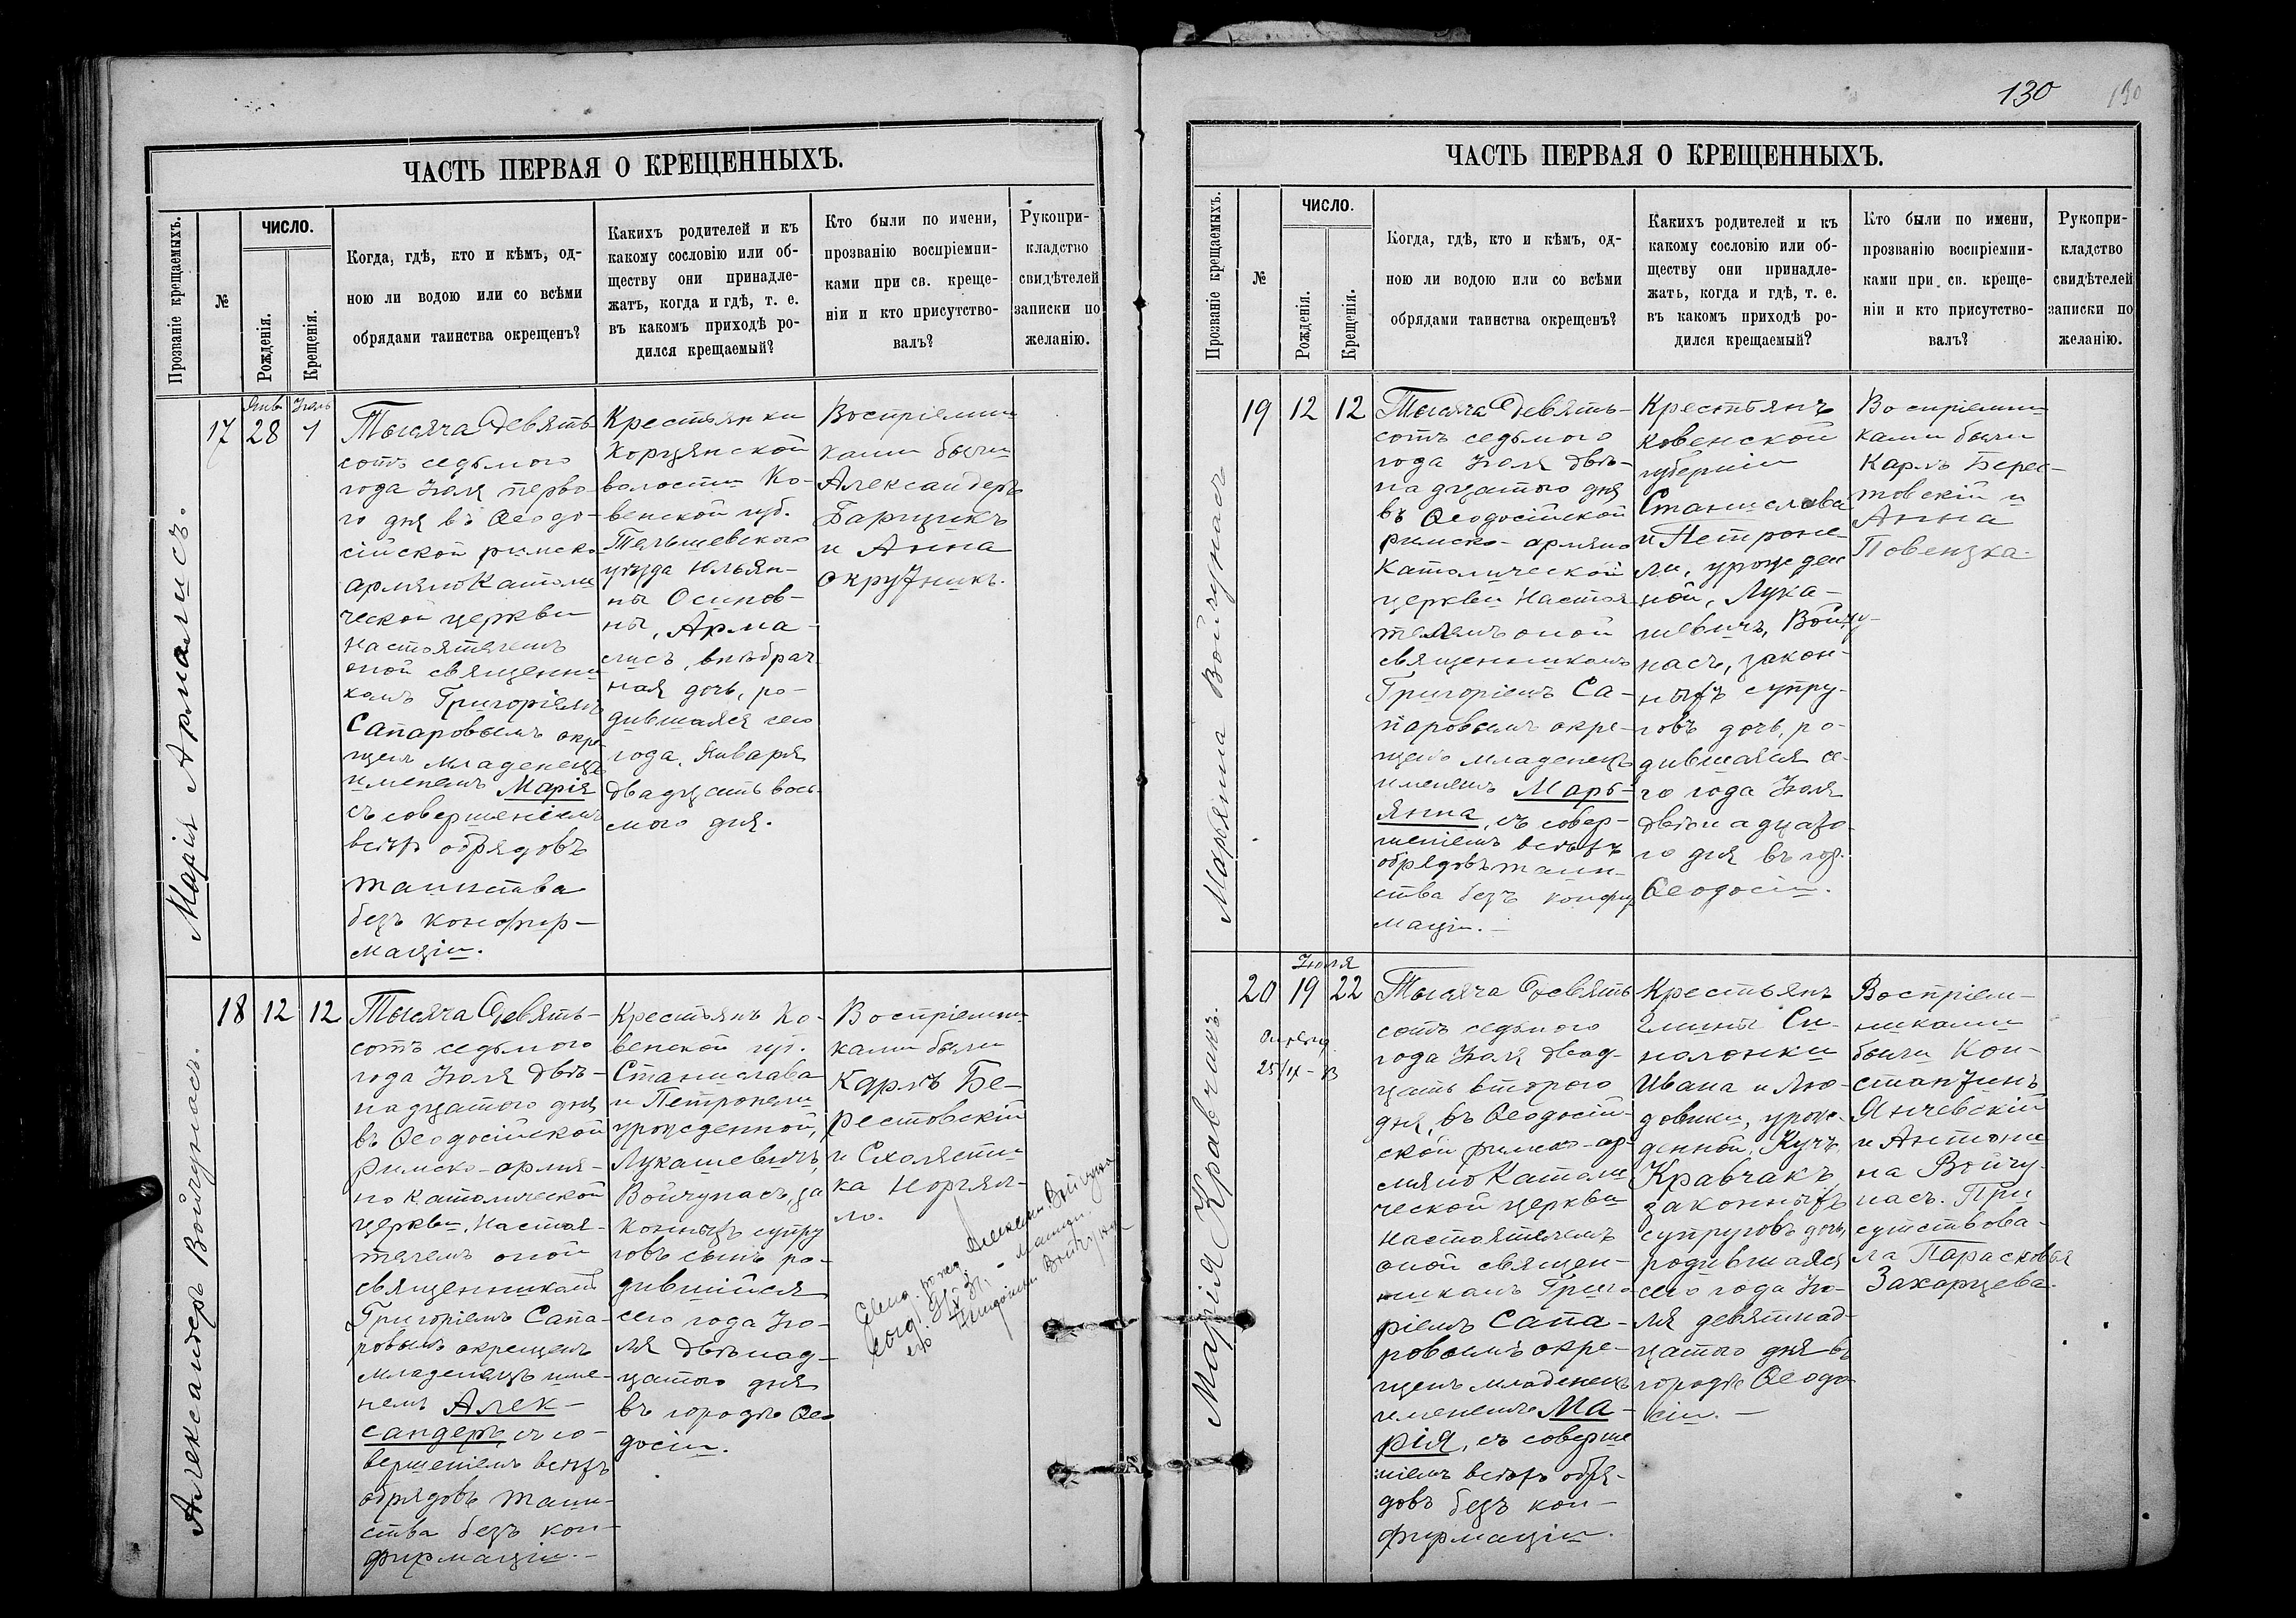 ЧАСТЬ ПЕРВАЯ О КРЕЩЕННЫХЪ.
Прозваніе крещаемыхъ.
№
ЧИСЛО.
Рожденія.
Крещенія.
Когда, гдѣ, кто и кѣмъ, од-
ною ли водою или со всѣми
обрядами таинства окрещенъ?
Каких родителей и къ
какому сословію или об-
ществу они принадле-
жатъ, когда и гдѣ, т. е.
въ какомъ приходѣ ро-
дился крещаемый?
Кто были по имени,
прозванію воспріемни-
ками при св. креще-
ніи и кто присутство-
валъ?
Рукопри-
кладство
свидѣтелей
записки по
желанію.
Марія Армалисъ.
17
Янв
28
Іюль
1
Тысяча девять
сотъ седьмого
года Іюля перво-
го дня въ Ѳеодо-
сійской римско
армяно Католи
ческой церкви
настоятелемъ
оной священни
комъ Григоріемъ
Сапаровымъ окре
щенъ младенецъ
именемъ Марія
съ совершеніемъ
всѣхъ обрядовъ
таинства
безъ конфир-
маціи.
Крестьянки
Корцянской
волости Ко-
венской губ.
Тельшевского
уѣзда Юльян-
ны Осипов-
ны, Арма-
лисъ, внѣбрач-
ная дочь, ро-
дившаяся сего
года, Января
двадцать вось-
мого дня.
Воспріемни
ками были
Александеръ
Барцикъ
и Анна
Окружникъ.
Александеръ Войчунасъ.
18
12
12
Тысяча Девять-
сотъ седьмого
года Іюля двѣ-
надцатого дня
въ Ѳеодосійской
римско-армя-
но Католической
церкви, Настоя-
телемъ оной
священникомъ
Григоріемъ Сапа-
ровымъ окрещенъ
младенецъ име-
немъ Алек-
сандеръ, съ со-
вершеніемъ всѣхъ
обрядовъ таин-
ства безъ кон-
фирмаціи.-
Крестьянъ Ко-
венской гу.
Станислава
и Петронели
урожденной,
Лукашевичъ,
Войчунасъ, за
конныхъ супру
говъ сынъ ро-
дившійся
сего года Ію-
ля двѣнад-
цатого дня
въ городѣ Ѳео
досіи.
Воспріемни
ками были
Карлъ Бе-
рестовскій
и Схоласти
ка Норгял-
ло.
ЧАСТЬ ПЕРВАЯ О КРЕЩЕННЫХЪ.
130
130
Прозваніе крещаемыхъ.
№
ЧИСЛО.
Рожденія.
Крещенія.
Когда, гдѣ, кто и кѣмъ, од-
ною ли водою или со всѣми
обрядами таинства окрещенъ?
Какихъ родителей и къ
какому сословію или об-
ществу они принадле-
жатъ, когда и гдѣ, т. е.
въ какомъ приходѣ ро-
дился крещаемый?
Кто были по имени,
прозванію воспріемни-
ками при св. креще-
ніи и кто присутство-
валъ?
Рукопри-
кладство
свидѣтелей
записки по
желанію.
Марьянна Войчунасъ
19
12
12
Тысяча Девять-
сотъ седьмого
года Іюля двѣ-
надцатого дня
въ Ѳеодосійской
римско-армяно
Католической
церкви Настоя
телемъ оной
священникомъ
Григоріемъ Са-
паровымъ окре-
щенъ младенецъ
именемъ Марь-
янна, съ совер-
шеніемъ всѣхъ
обрядовъ таин-
ства безъ конфир
маціи.-
Крестьянъ
Ковенской
губерніи
Станислава
и Петроне-
ли, урожден
ной, Лука-
шевичъ, Войчу-
насъ, закон-
ныхъ супру-
говъ дочь, ро-
дившаяся се-
го года Іюля
двѣнадцато-
го дня въ гор.
Ѳеодосіи.
Воспріемни
ками были
Карлъ Берес-
товскій и
Анна
Повенцка.
Марія Кравчакъ.
20
Іюля
19
22
25/IX-
Тысяча Девять
сотъ седьмого
года Іюля двад-
цать второго
дня, въ Ѳеодосій-
ской римско-ар-
мяно Католи
ческой церкви
настоятелемъ
оной священ-
никомъ Григо
ріемъ Сапа-
ровымъ окре-
щенъ младенецъ
именемъ Ма-
рія, съ соверше
ніемъ всѣхъ обря-
довъ безъ кон-
фирмаціи.
Крестьянъ
Гмины Си-
ноленки
Ивана и Лю-
довики, урож-
денной, Кучъ,
Кравчакъ
законныхъ
супруговъ дочь,
родившаяся
сего года Ію-
ля девятнад-
цатого дня въ
городѣ Ѳеодо
сіи.-
Воспріем-
никами
были Кон-
стантинъ
Янчевскій
и Антони
на Войчу-
насъ. При
сутствова-
ла Парасковья
Захарцева.